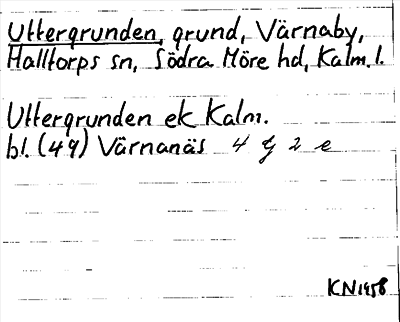 Uttergrunden, grund, Värnaby,
Halltorps sn, Södra Möre hd, Kalm. l.
Uttergrunden ek Kalm.
bl. (49) Värnanäs 4 G 2 e
KN 1958